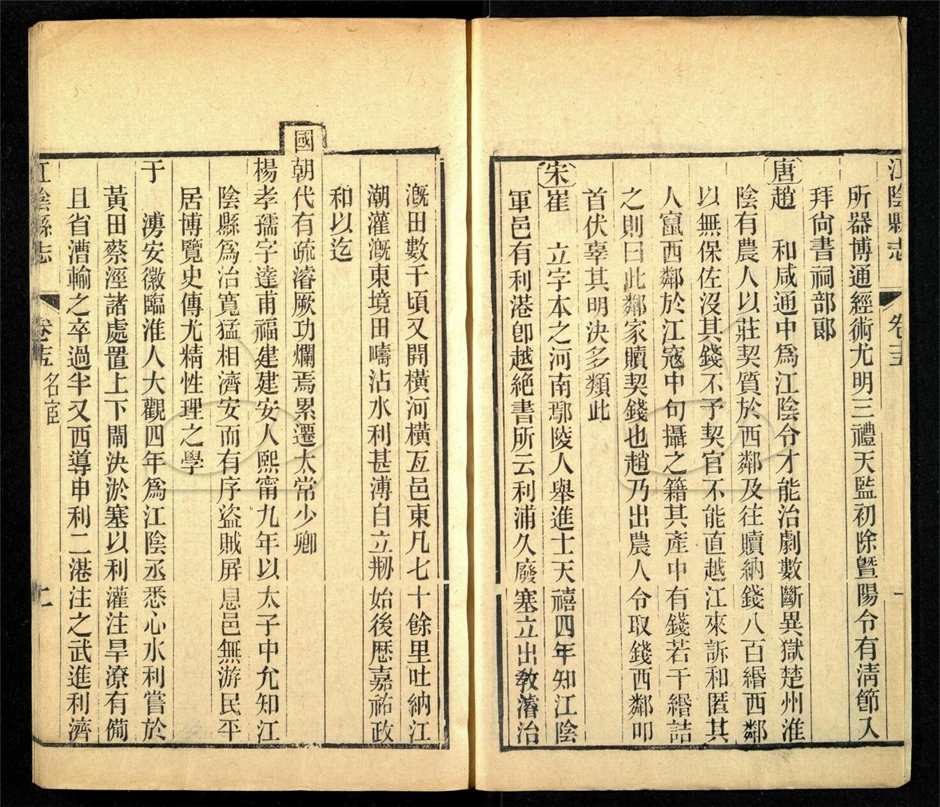 江陰縣志 卷十五 一
所器博通經術尤明三禮天監初除暨陽令有淸節入
拜尙書祠部郞
唐趙 和咸通中爲江陰令才能治劇數斷異獄楚州淮
陰有農人以莊契質於西鄰及往贖納錢八百緡西鄰
以無保佐沒其錢不予契官不能直越江來訴和匿其
人竄西鄰於江寇中句攝之籍其產中有錢若干緡詰
之則曰此鄰家贖契錢也趙乃出農人令取錢西鄰叩
首伏辜其明決多類此
宋崔 立字本之河南鄢陵人舉進士天禧四年知江陰
軍邑有利港卽越絕書所云利浦久廢塞立出敎濬治
漑田數千頃又開橫河橫亙邑東凡七十餘里吐納江
潮灌漑東境田疇沾水利甚溥自立刱始後歷嘉祐政
和以迄
國朝代有疏濬厥功爛焉累遷太常少卿
楊孝孺字達甫福建建安人熙甯九年以太子中允知江
陰縣爲治寬猛相濟安而有序盜賊屏息邑無游民平
居博覽史傳尤精性理之學
于 溥安徽臨淮人大觀四年爲江陰丞悉心水利嘗於
黃田蔡涇諸處置上下閘決淤塞以利灌注旱潦有備
且省漕輸之卒過半又西導申利二港注之武進利濟
江陰縣志 卷十五 名宦 二